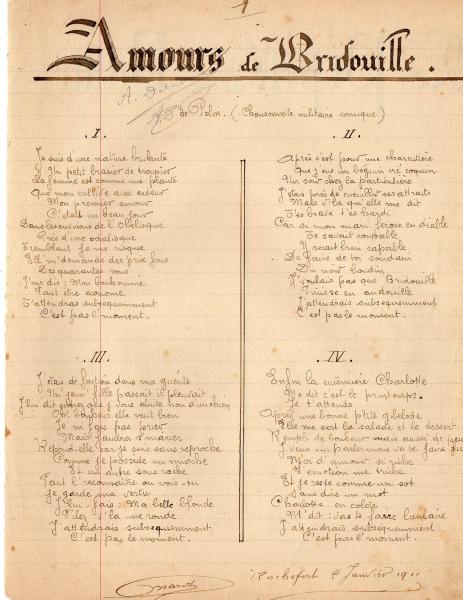 1
Amours de Bridouille.
de Polin. (Chansonnette militaire comique)
. I .
Je suis d'une nature brulante
Un petit brasier de troupier
La femme est comme une plante
Que mon cultive avec ardeur
Mon premier amour
C'était un beau jour
Dans les environs de l'Obélisque
Près d'une odalisque
Tremblant je me risque
Ell' m'demande des prix fous
Des quarante sous
J'me dis: Mon bonhomme
Faut être économe
T'attendras subséquemment
C'est pas l'moment.
. II .
Après c'est pour une charcutière
Que j'eus un béguin ure coquin
Un soir chez la particulière
J'étais près de cueuillir ses attraits
Mais v'la qu'elle me dit
T'es brave t'es hardi
Car si mon mari féroce en diable
Te savait coupable
Il serait bien capable
De faire de toi soudain
Du noir boudin
J'voulais pas que Bridouille
Finisse en andouille
J'attendrais subséquemment
C'est pas le moment.
. III .
J'étais de faction dans ma guérite
Un' jeun' fille passait il pleuvait
J'lui dit
Oh bonheur elle veut bien
Je m'fais pas prier
Mais faudra s'marier
Répond-elle car je suis sans reproche
Comme je possède un mioche
Et un autre sous roche
Faut l'reconnaître ou vois-tu
Je garde ma vertu
J'lui fais: Ma belle blonde
Filez v'la une ronde
J'attendrais subséquemment
C'est pas le moment.
. IV .
Enfin la cuisinière Charlotte
Me dit c'est le printemps.
Je t'attends
Après une bonne p'tite
Elle me sert la salade et le dessert
Rempli de bonheur mais aussi de
J'veux parler mais va te faire
Moi d'amour si riche
L'émotion me
Et je reste comme un sot
Sans dire un mot
Charlotte en colère
M'dit: vas te faire lanlaire
J'attendrais subséquemment
C'est pas l'moment.
Rochefort 2 Janvier 1911